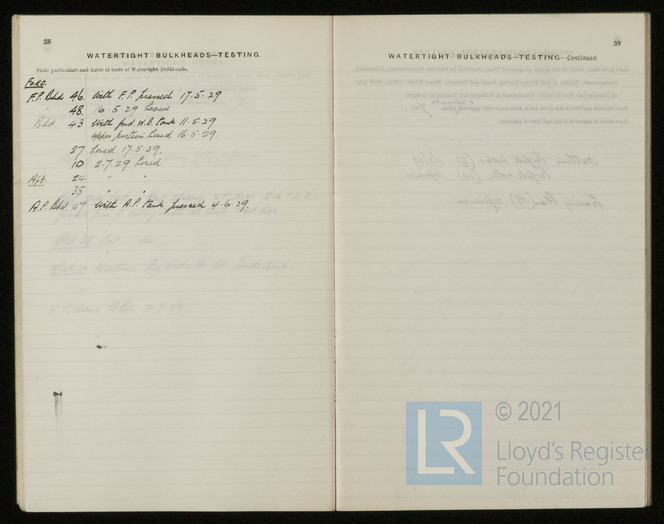 38
WATERTIGHT BULKHEADS—TESTING.
State particulars and dates of tests of Watertight Bulkheads.
Ford.
F.P. Bhd 46. With F.P. pressed 17.5.29
" 48. 16.5.29 hosed
Bhd. 43 With ford. W.B. tank 11.5.29
upper portion hosed 16.5.29.
27 hosed 17.5.29.
10 2.7.29 hosed
Aft. 24 " "
35 " "
A.P. Bhd 47 With A.P. tank pressed 4.6.29.
39
WATERTIGHT BULKHEADS—TESTING—Continued.
LR
© 2021
Lloyd's Register
Foundation